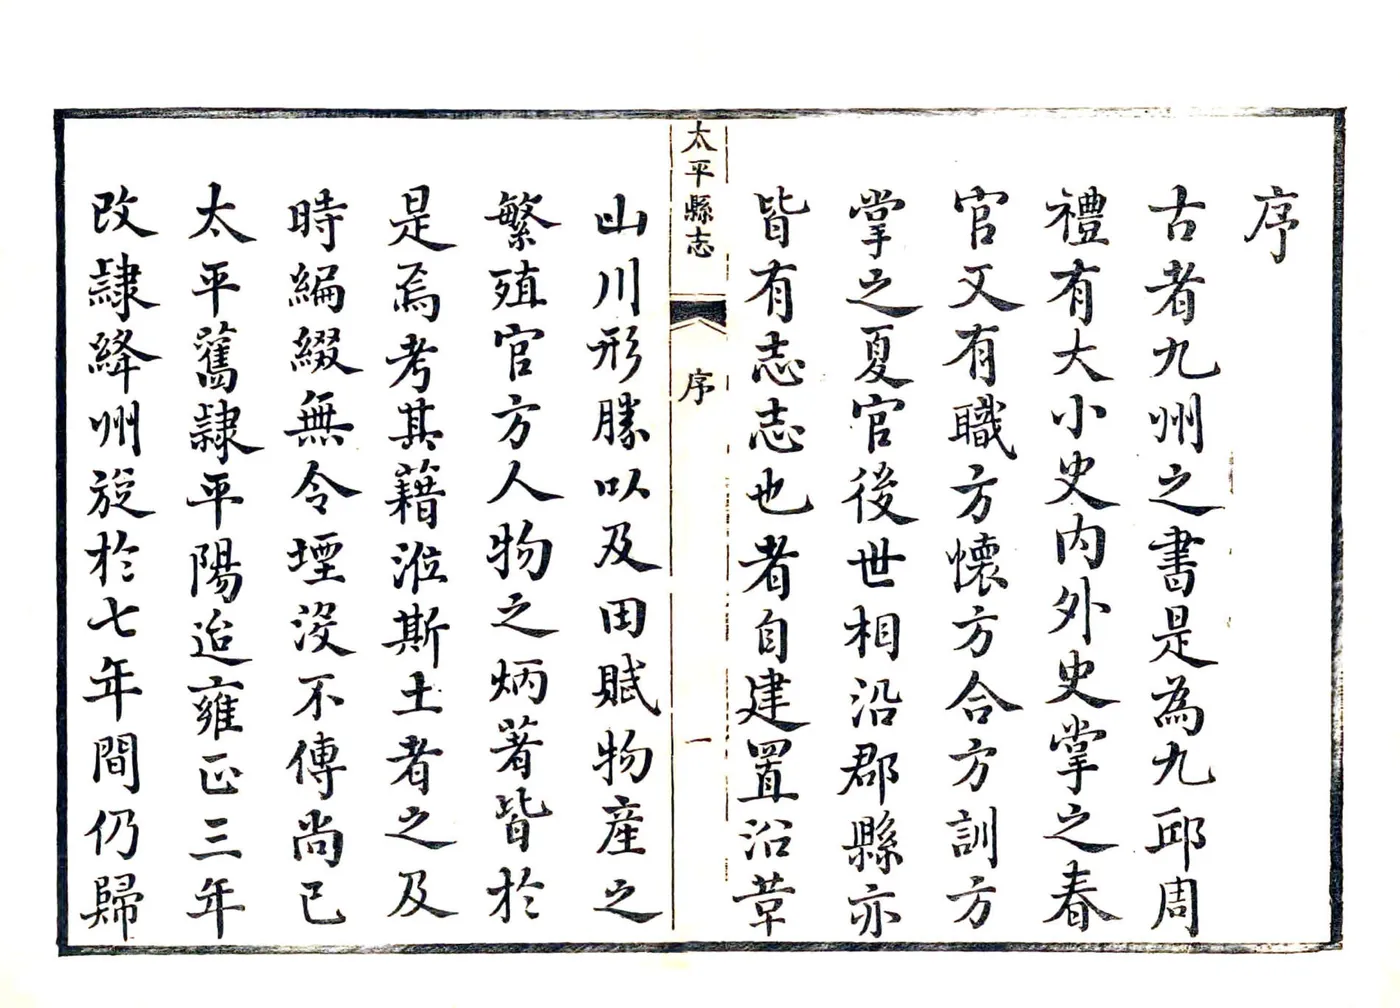 序
古者九州之書是為九邱周
禮有大小史内外史掌之春
官又有職方懷方合方訓方
掌之夏官後世相沿郡縣亦
皆有志志也者自建置沿革
太平縣志
序
一
山川形勝以及田賦物產之
繁殖官方人物之炳著皆於
是焉考其藉涖斯土者之及
時編綴無令堙沒不傳尚已
太平舊隸平陽迨雍正三年
改隸絳州旋於七年間仍歸